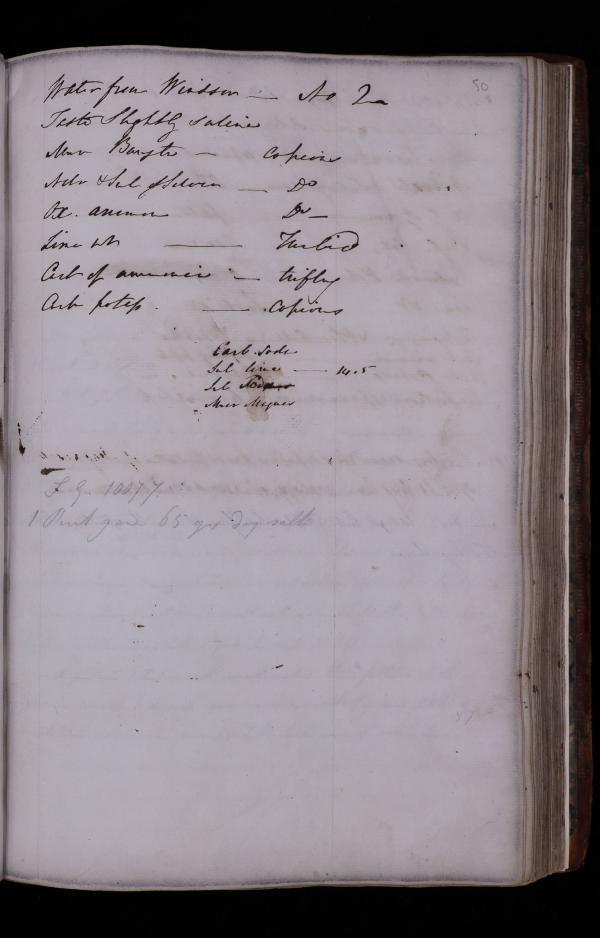 50
Water from Windsor — No 2
Taste Slightly saline
Mur Baryte — Copious
Nitr & Sul of Silver — Do
Ox. ammon Do —
Lime Wtr — Turbid
Carb of ammonia — trifling
Carb potass. — Copious
Carb. Soda
Sul lime — 14.5
Sul
Mur Magnes
S. Gr. 1007.7
1 Pint gave 65 grs dry salts